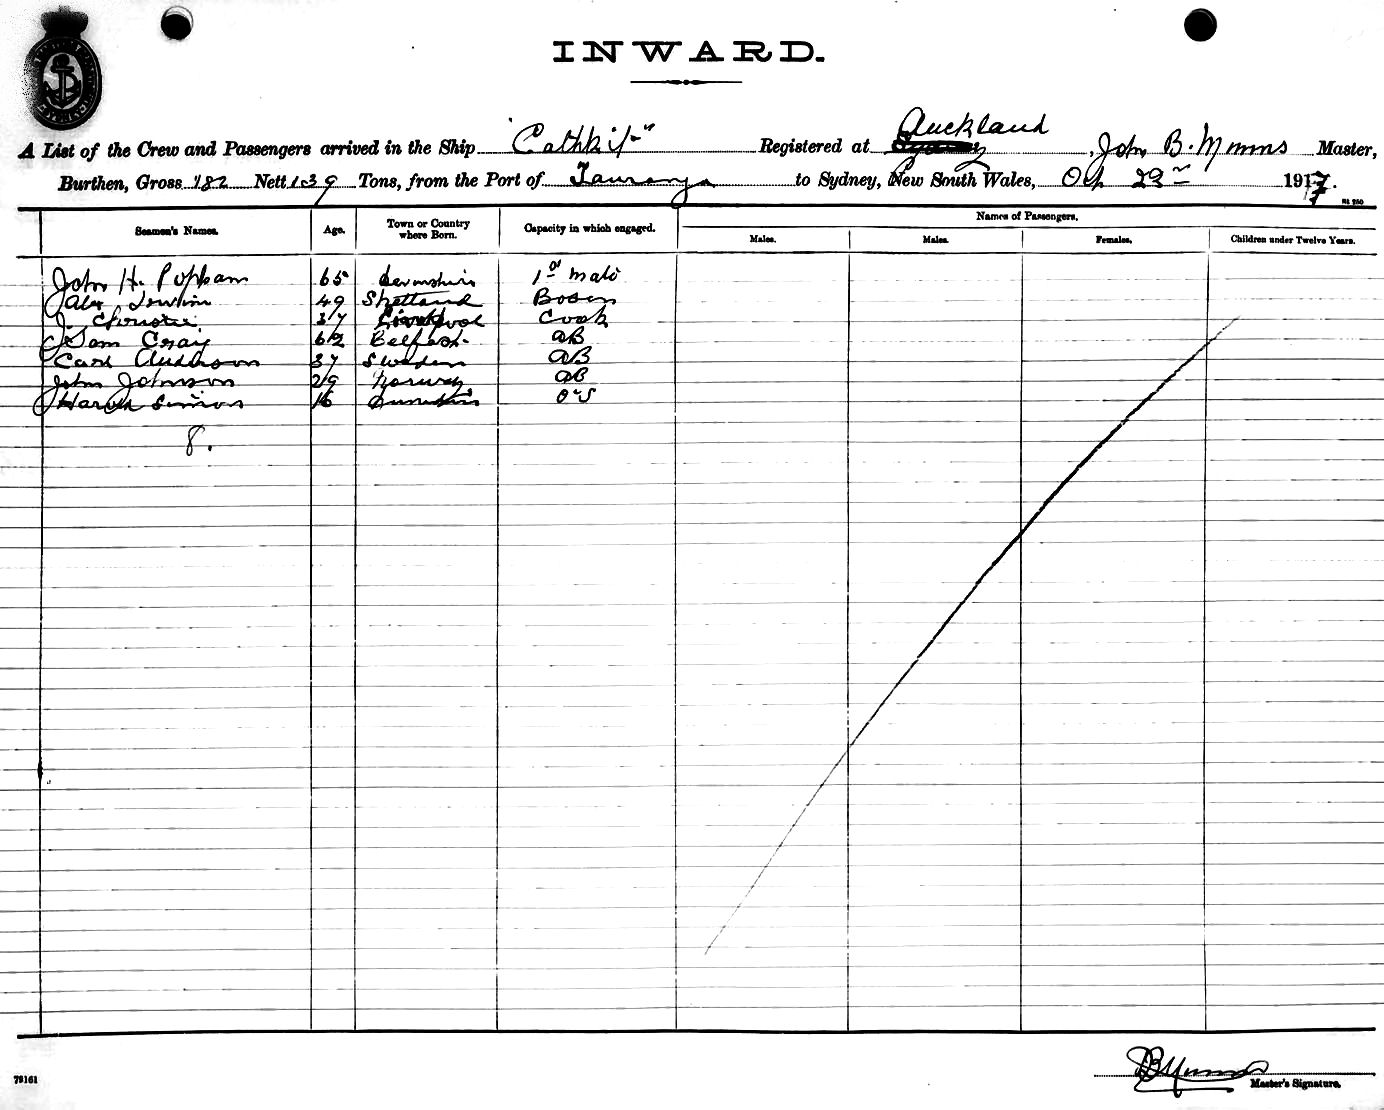 INWARD.
A List of the Crew and Passengers arrived in the Ship "Cathkit" Registered at Auckland Sydney, John B. Mmms Master,
Burthen, Gross 182 Nett 139 Tons, from the Port of Tauranga to Sydney, New South Wales, Oct 23rd 1917.
Seamen's Names. Age. Town or Country where Born. Capacity in which engaged. Names of Passengers.
Males. Males. Females. Children under Twelve Years.
John H. Popham 65 Devonshire 1st Mate
Alex 49 Shetland Bosun
J. Christie 37 Liverpool Cook
Sam Craig 62 Belfast AB
Carl Anderson 37 Sweden AB
John Johnson 29 Norway AB
Harold Simson 16 OS
8.
79161
Master's Signature.